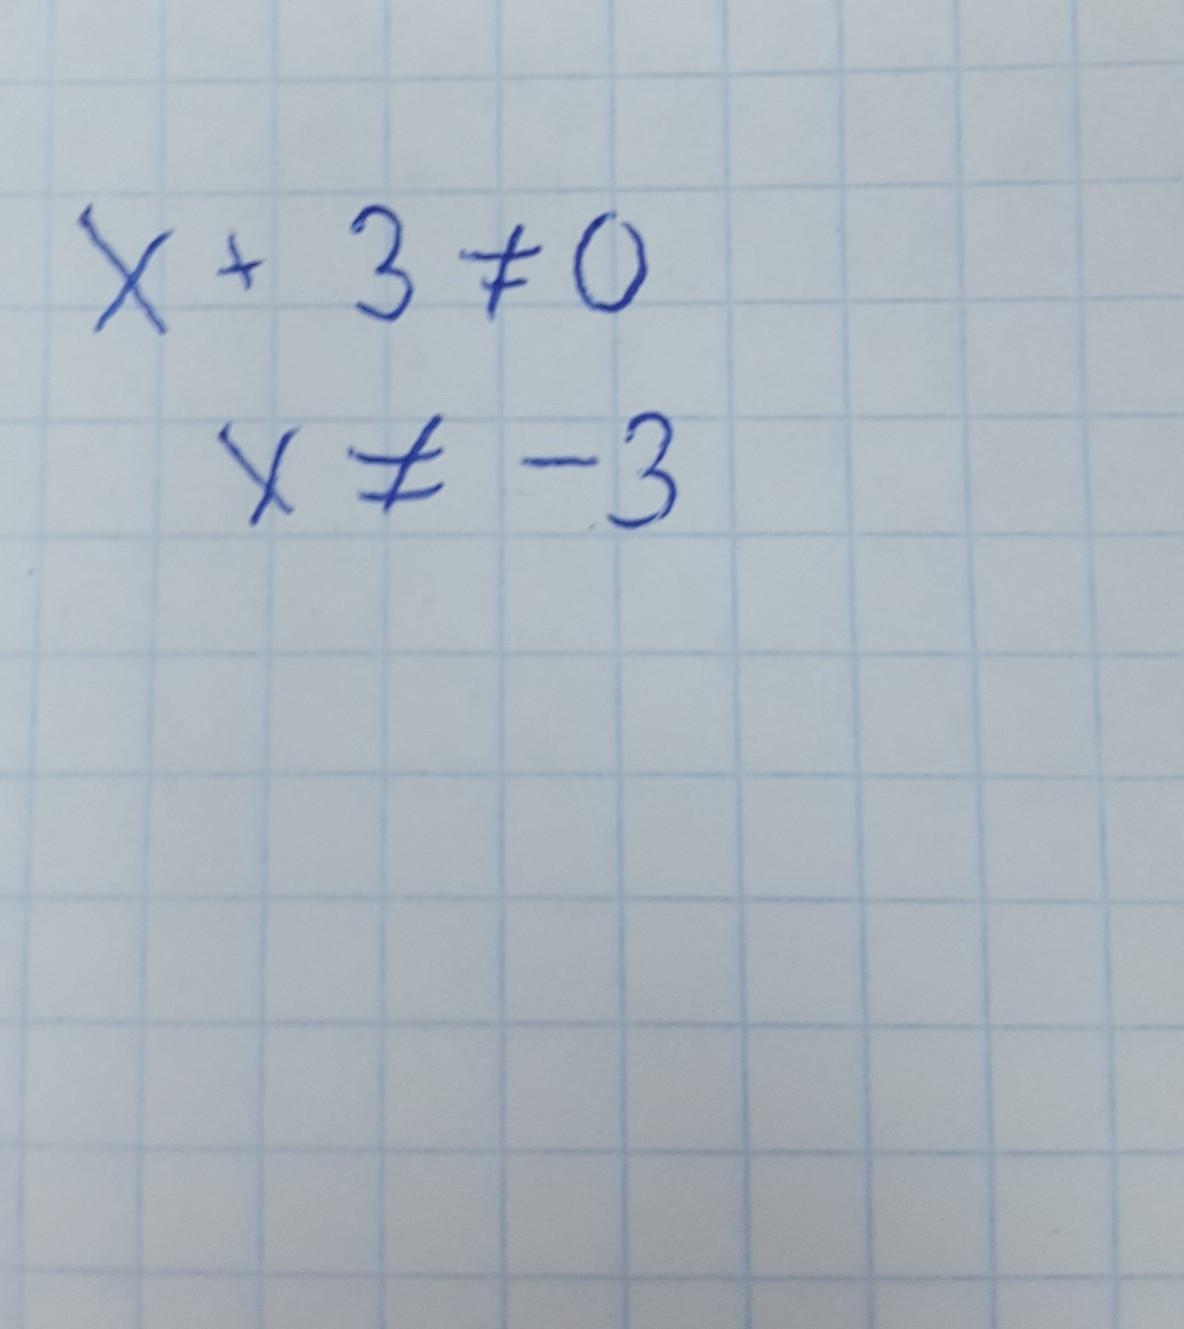 x + 3 ≠ 0
x ≠ -3